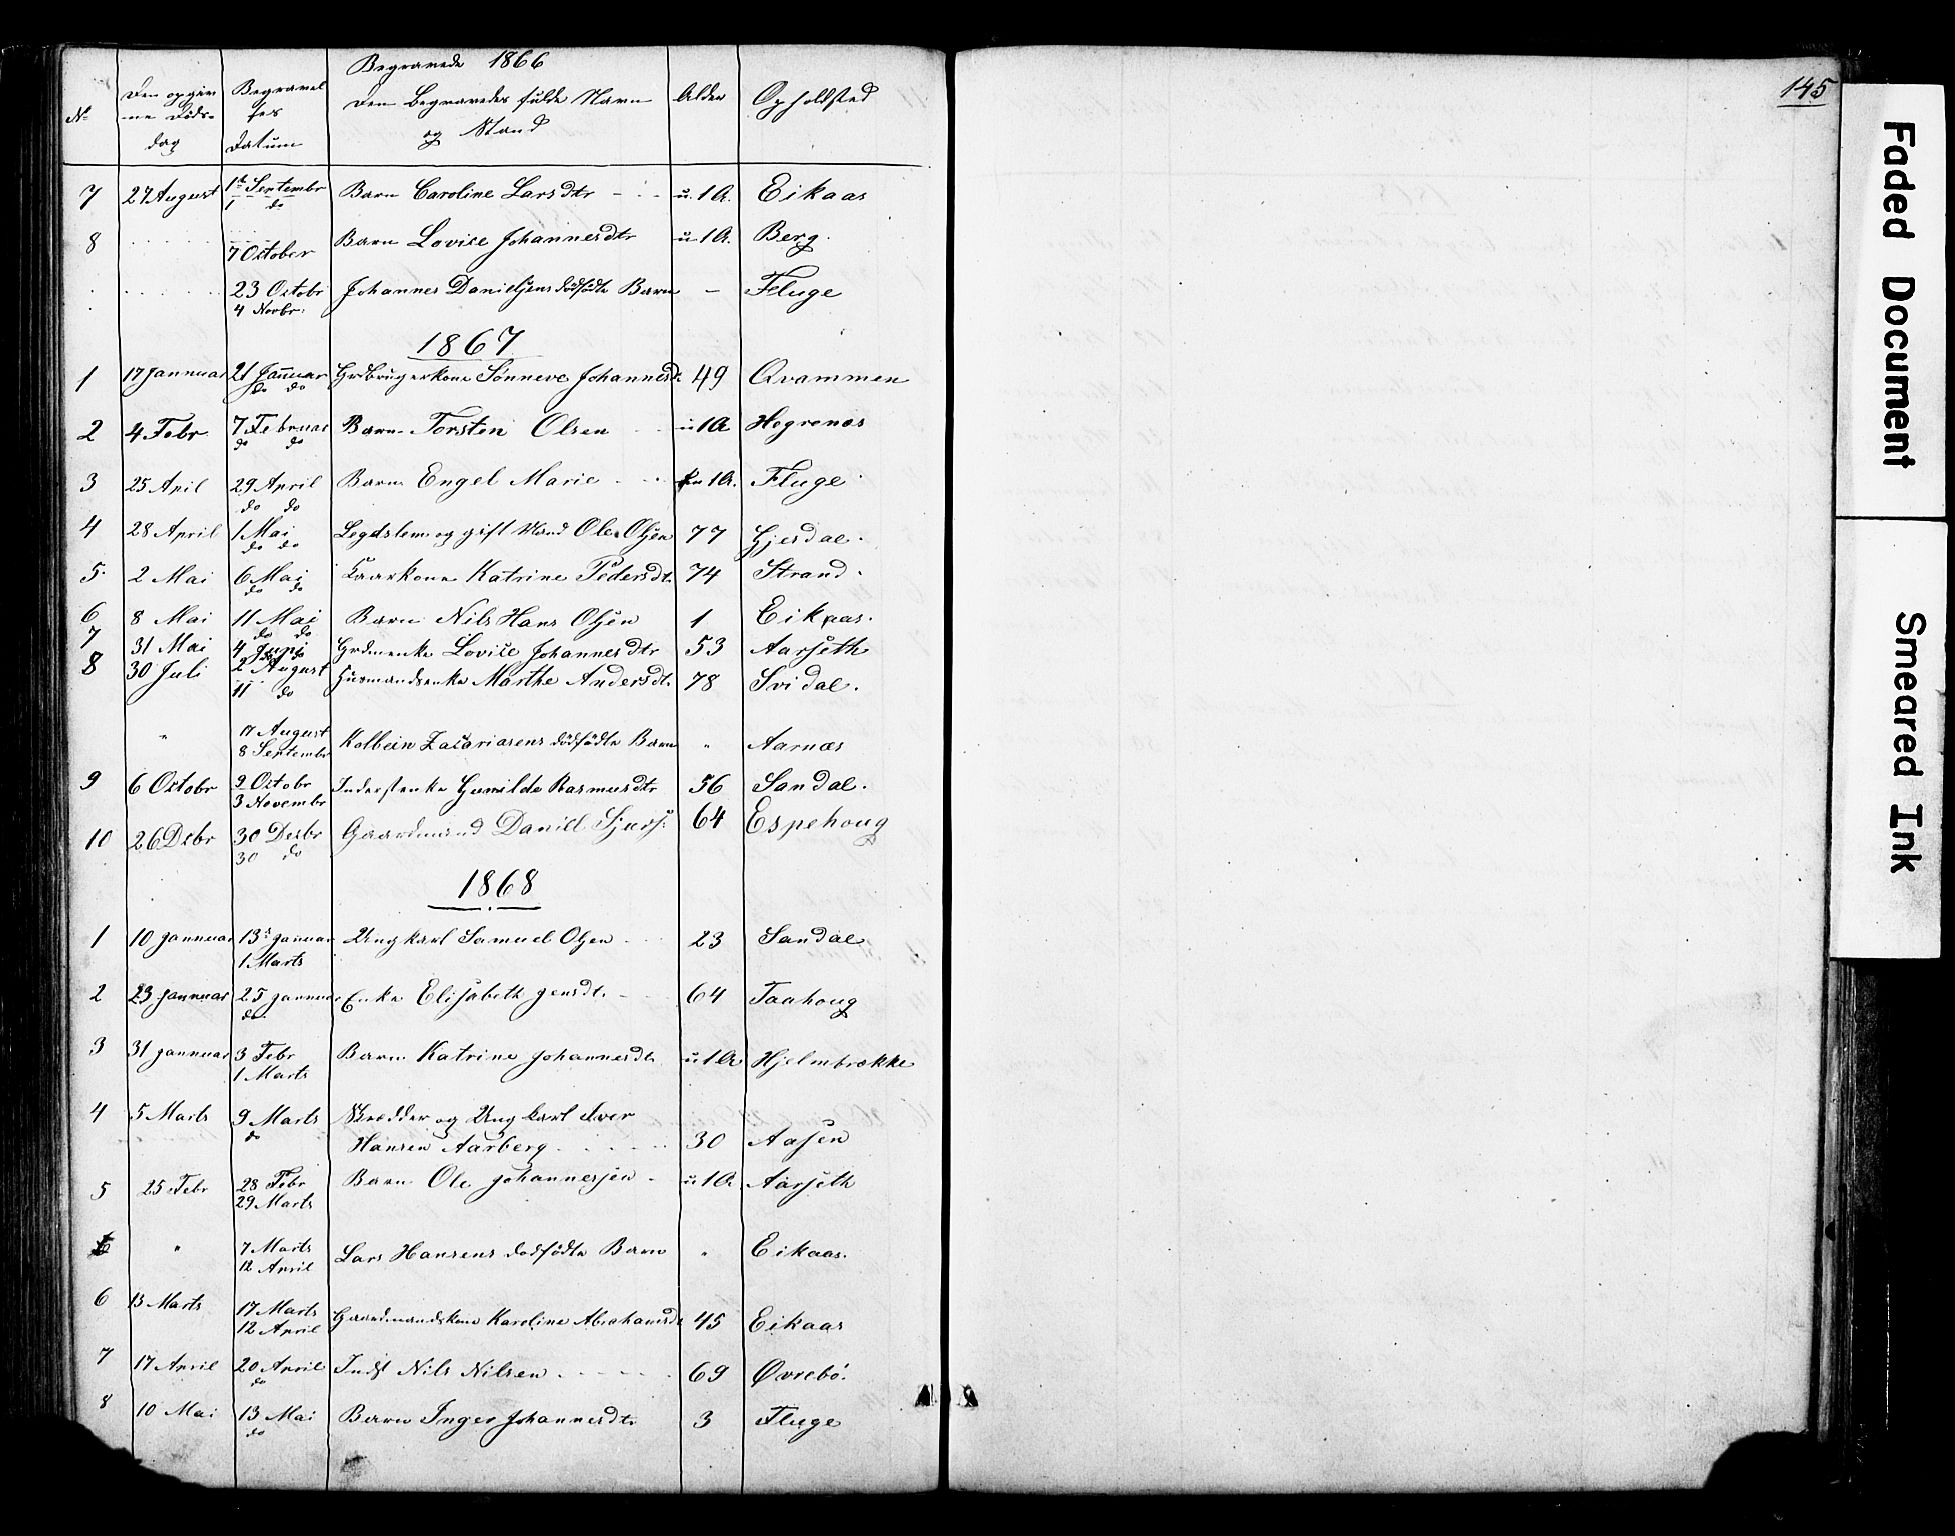 145
Faded Document
Smeared Ink
Begravede 1866
No Den opgivne Døds-dag Begravelses Datum Den Begravedes fulde Navn og Stand Alder Opholdsted
7 27 August 1st Septembr 1 do Barn Caroline Larsdtr - - - u. 1 A. Eikaas
8 7 October Barn Lovise Johannesdtr u 1 A. Berg.
23 Octobr 4 Novbr. Johannes Danielsens dødfødte Barn - Fluge
1867
1 17 Januar 21 Januar do do Grdbrugerkone Sønneve Johannesdt 49 Qvammen
2 4 Febr 7 Februar do do Barn Torsten Olsen u 1 A Hegrenæs
3 25 April 29 April do do Barn Engel Marie 1 A. Fluge
4 28 April 1 Mai do do Legdslem og gift Mand Ole Olsen 77 Gjesdal.
5. 2 Mai 6 Mai do do Kaarkone Katrine Pedersdt. 74 Strand.
6 8 Mai 11 Mai do do Barn Nils Hans Olsen 1 Eikaas.
7 31 Mai 4 Juni do Grdmenke Lovise Johannesdtr 53 Aarseth
8 30 Juli 2 August 11 do Husmandsenke Marthe Andersdt. 78 Svidal.
" 17 August 8 Septembr Kolbein Zacariasens dödfödte Barn " Aarnæs
9 6 Octobr 9 Octobr 3 Novembr Inderstenke Gunilde Rasmusdtr 56 Sandal.
10 26 Debr 30 Desbr 30 do Gaardmand Daniel Sjurs. 64 Espehoug
1868
1 10 Januar 13d Januar 1 Marts Ungkarl Samuel Olsen 23 Sandal
2 23 Januar 25 Januar do. Enke Elisabeth Jensdt. 64 Taahoug
3 31 Januar 3 Febr 1 Marts Barn Katrine Johannesdt. u 1 A Hjelmbrække
4 5 Marts 9 Marts do Skrædder og Ungkarl Iver
Hansen Aarberg 30 Aasen
5 25 Febr 28 Febr 29 Marts Barn Ole Johannessen u 1 A. Aarseth
" 7 Marts 12 April Lars Hansens dødfødte Barn " Eikaas.
6 13 Marts 17 Marts 12 April Gaardmandskone Karoline Abrahamsdt 45 Eikaas
7 17 April 20 April do Indst Nils Nilsen 69 Øvrebö.
8 10 Mai 13 Mai do Barn Inger Johannesdtr 3 Fluge